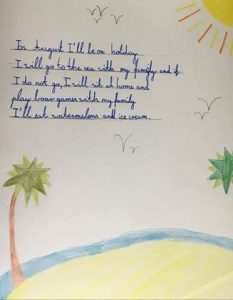 In August I'll be on holiday.
I will go to the sea with my family and if
I do not go, I will sit at home and
play boar games with my family.
I'll eat watermelons and ice cream.